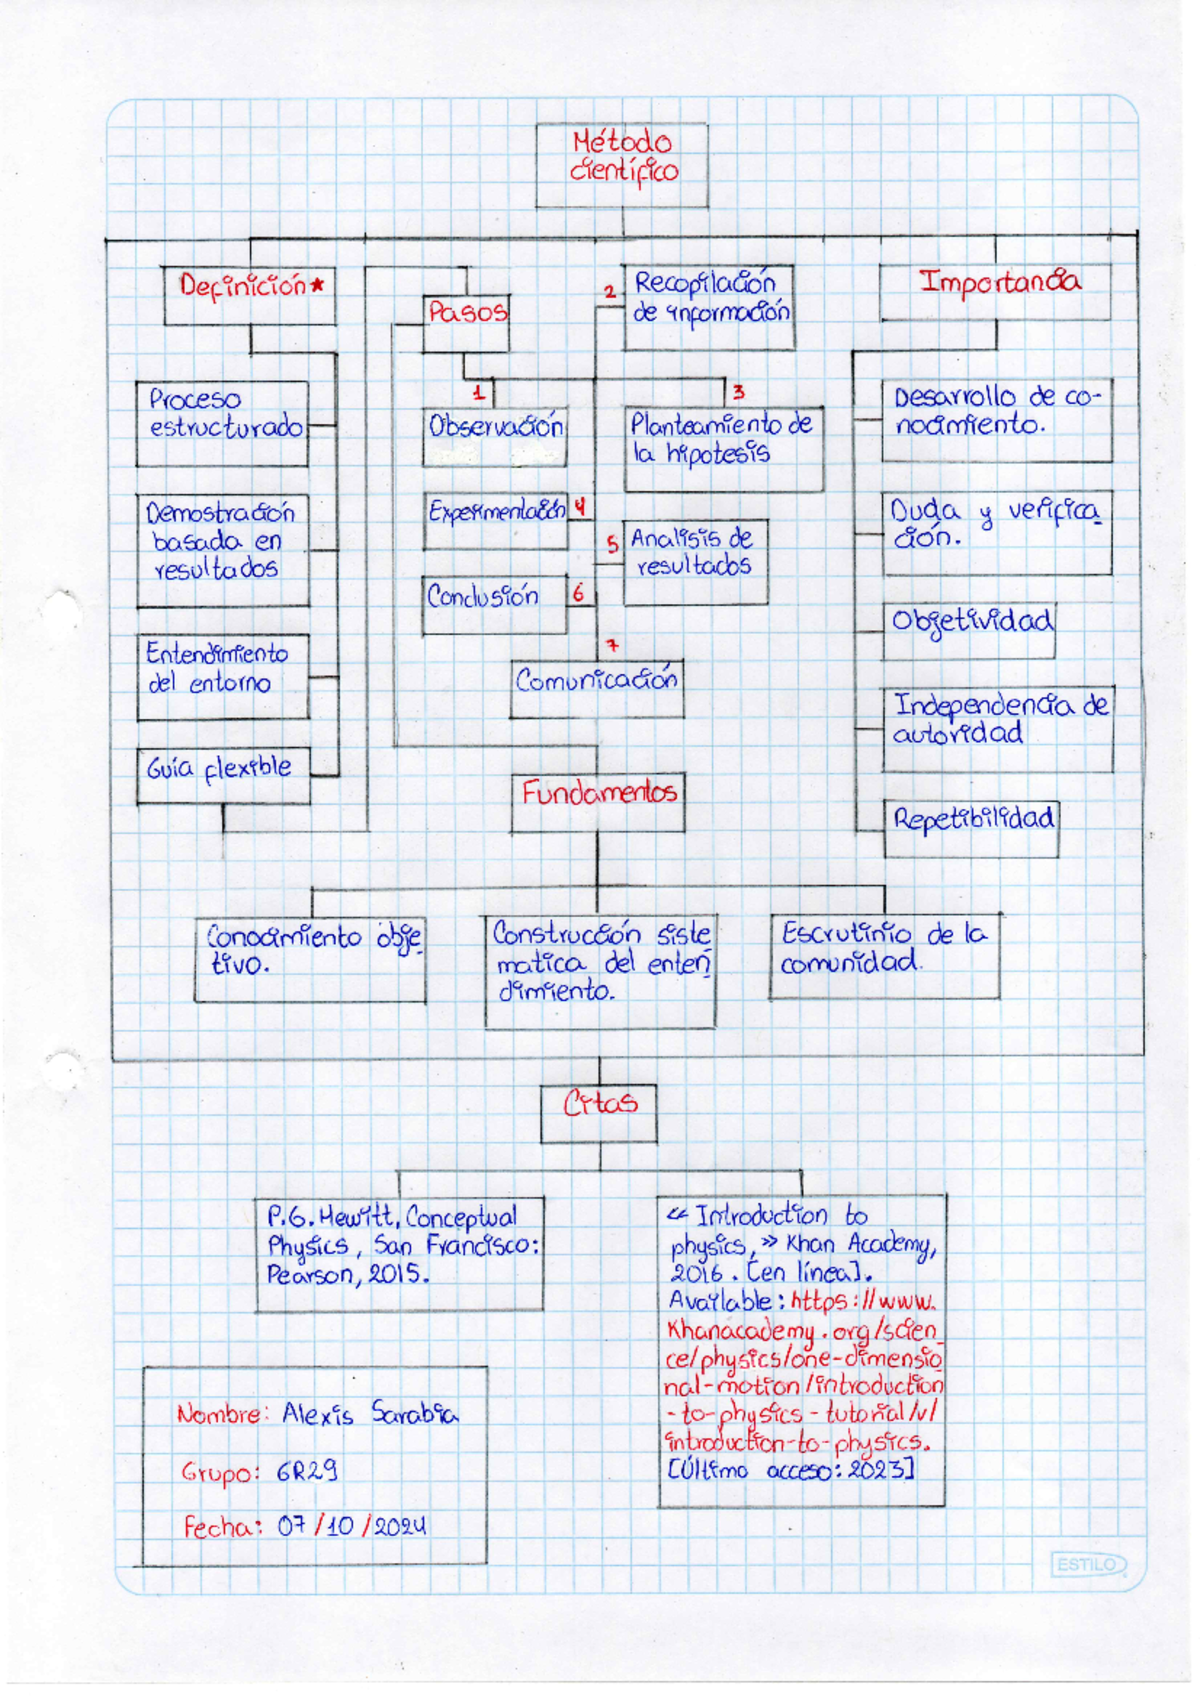 Método
científico
Definición★
Proceso
estructurado
Demostración
basada en
resultados
Entendimiento
del entorno
Guía flexible
Pasos
1
Observación
2
Recopilación
de información
3
Planteamiento de
la hipotesis
Experimentación
4
5
Analisis de
resultados
Conclusión
6
7
Comunicación
Importancia
Desarrollo de co-
nocimiento.
Duda y verifica_
ción.
Objetividad
Independencia de
autoridad
Repetibilidad
Fundamentos
Conocimiento obje_
tivo.
Construcción siste
matica del enten_
dimiento.
Escrutinio de la
comunidad.
Citas
P.G. Hewitt, Conceptual
Physics, San Francisco:
Pearson, 2015.
« Introduction to
physics, » Khan Academy,
2016. [en línea].
Available: https://www.
Khanacademy.org/scien_
ce/physics/one-dimensio
nal-motion/introduction
-to-physics-tutorial/v/
introduction-to-physics.
[Último acceso: 2023]
Nombre: Alexis Sarabia
Grupo: 6R29
Fecha: 07/10/2024
ESTILO